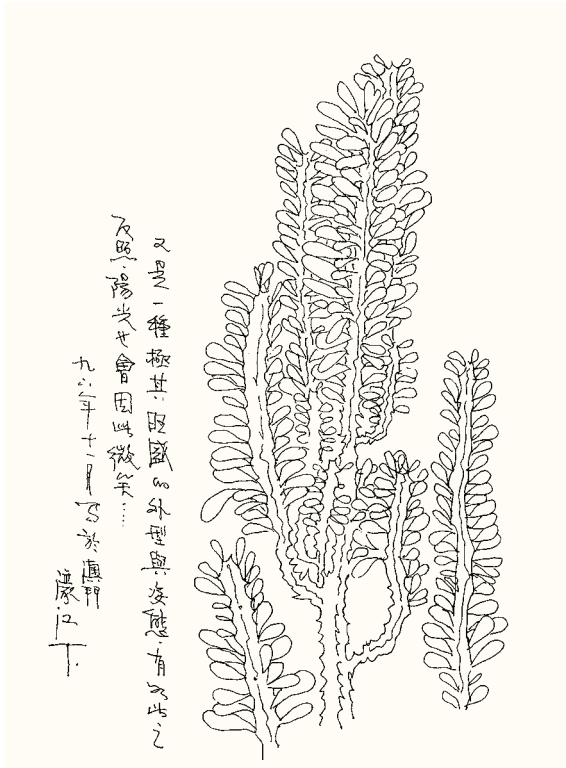 又是一種極其旺盛的外型與姿態.有如此之
反照.陽光也會因此微笑....
九六年十一月寫於澳門
濠江下.